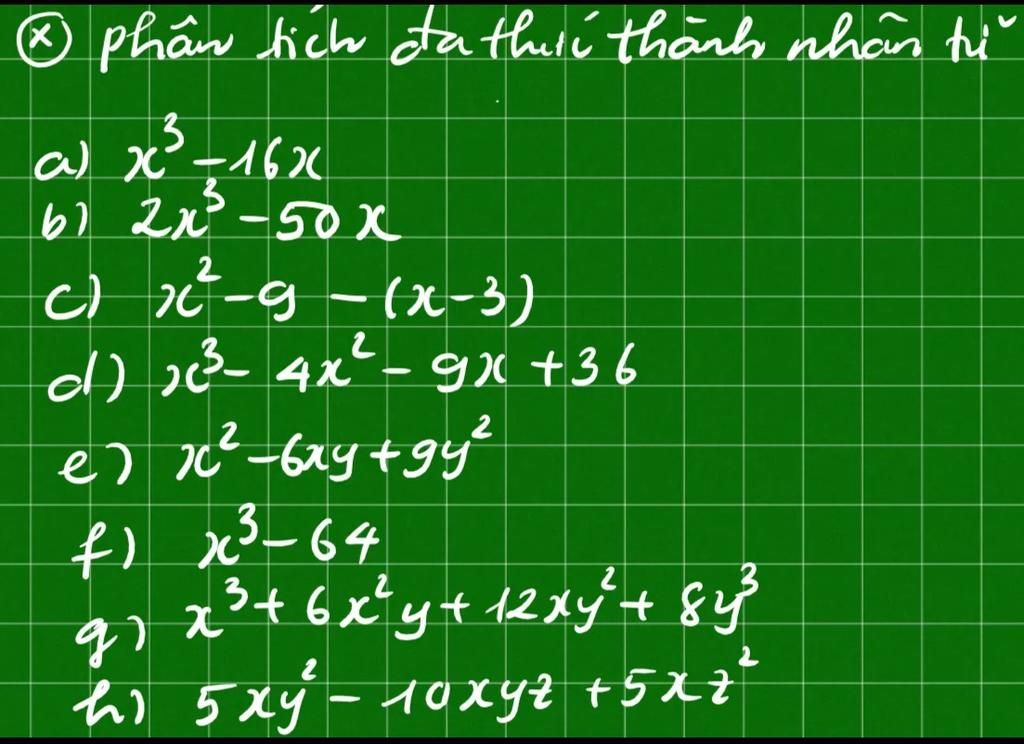 ⓧ phân tích đa thức thành nhân tử
a) x³ - 16x
b) 2x³ - 50x
c) x² - 9 - (x - 3)
d) x³ - 4x² - 9x + 36
e) x² - 6xy + 9y²
f) x³ - 64
g) x³ + 6x²y + 12xy² + 8y³
h) 5xy² - 10xyz + 5xz²